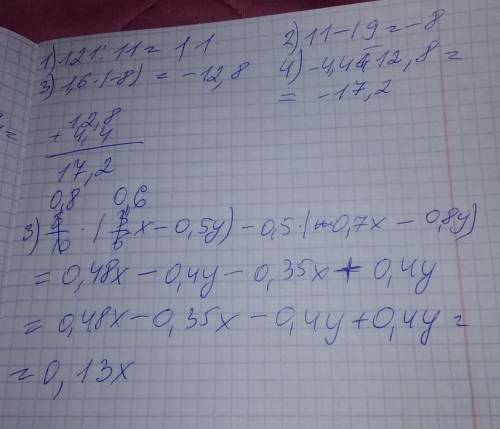 1) 121 : 11 = 11
2) 11 - 19 = -8
3) 1,6 · (-8) = -12,8
4) -4,4 - 12,8 =
= -17,2
12,8
+ 4,4
17,2
0,8 0,6
3) 8/10 · (3/5x - 0,5y) - 0,5 · (-0,7x - 0,8y)
= 0,48x - 0,4y - 0,35x + 0,4y
= 0,48x - 0,35x - 0,4y + 0,4y =
= 0,13x